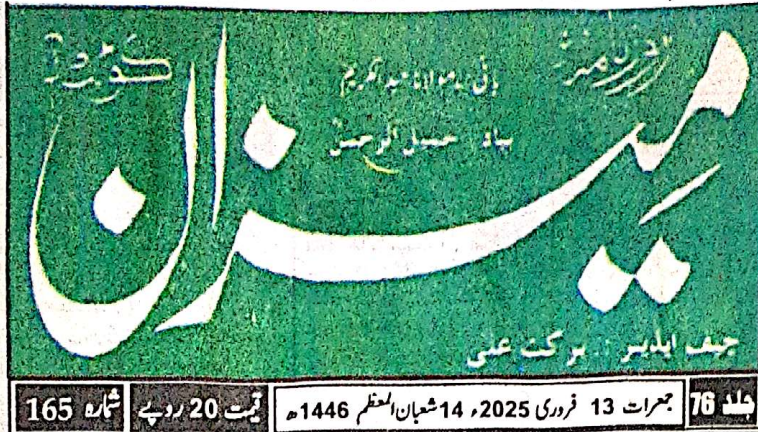 روزنامہ
میزان
کوئٹہ
بانی: مولانا عبدالکریم
بیاد: جمیل الرحمن
چیف ایڈیٹر :: برکت علی
جلد 76 جمعرات 13 فروری 2025ء 14 شعبان المعظم 1446ھ قیمت 20 روپے شمارہ 165